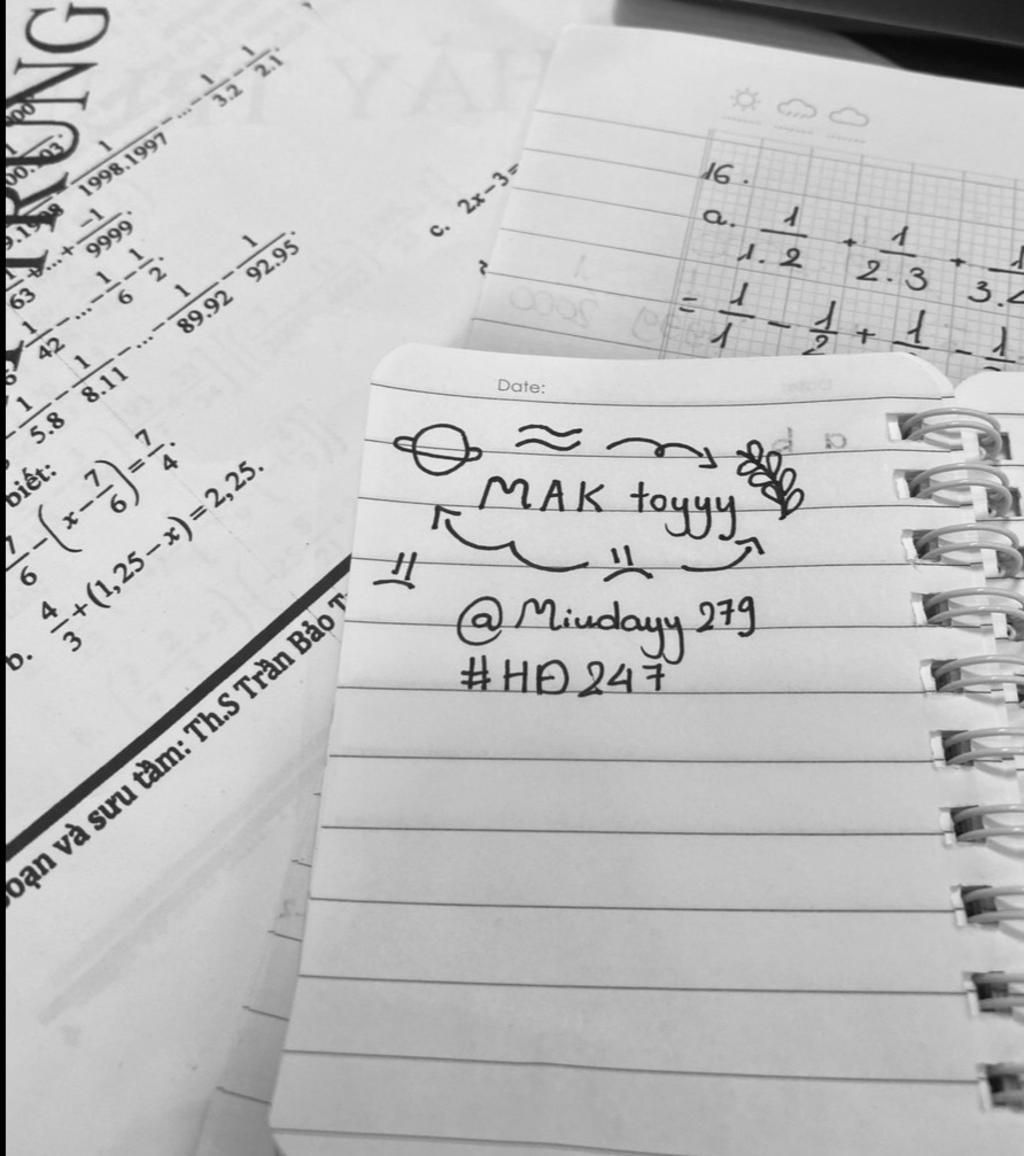 TRUNG
1/1998.1997 - ... - 1/3.2 - 1/2.1.
63 + ... + -1/9999.
1/42 - ... - 1/6 - 1/2.
1/5.8 - 1/8.11 - ... - 1/89.92 - 1/92.95.
biết:
7/6 - (x - 7/6) = 7/4.
b. 4/3 + (1,25 - x) = 2,25.
c. 2x - 3 =
và sưu tầm: Th.S Trần Bảo
16.
a. 1/1.2 + 1/2.3 +
= 1/1 - 1/2 + 1 - 1
Date:
MAK toyyy
@Miudayy 279
#HĐ247